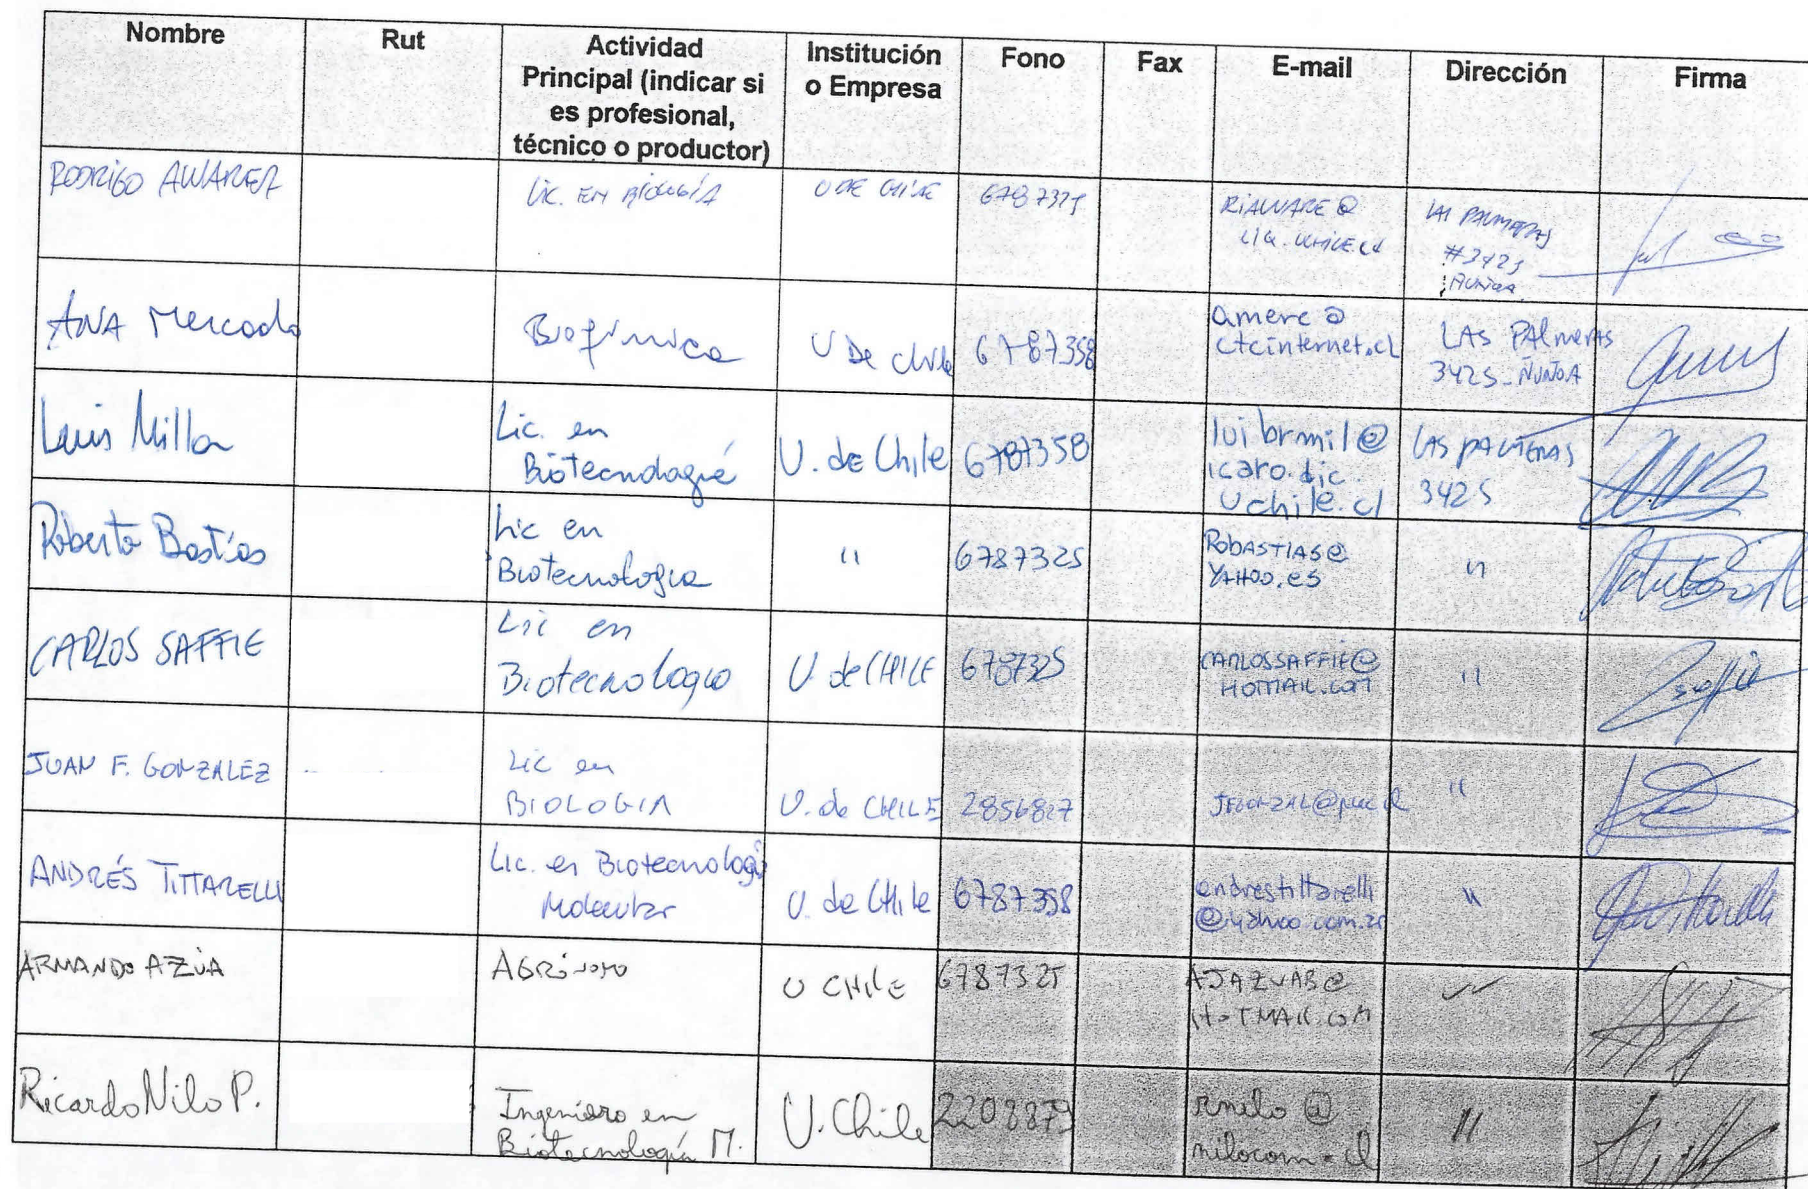 Nombre
Rut
Actividad
Principal (indicar si
es profesional,
técnico o productor)
Institución
o Empresa
Fono
Fax
E-mail
Dirección
Firma
RODRIGO ALVAREZ
LIC. EN BIOLOGÍA
U DE CHILE
6787325
RIALVARE@
LAS PALMERAS
#3425
ANA Mercado
Bioquímica
U De chile
6787358
amerc@
ctcinternet.cl
LAS PAlmerAS
3425-ÑUÑOA
Luis Milla
Lic. en
Biotecnología
U. de Chile
6787358
luibrmil@
icaro.dic.
uchile.cl
LAS PALMERAS
3425
Roberto Bastías
Lic en
Biotecnología
"
6787325
ROBASTIAS@
YAHOO.es
"
CARLOS SAFFIE
Lic en
Biotecnologia
U de CHILE
6787325
CARLOSSAFFIE@
HOTMAIL.COM
"
JUAN F. GONZALEZ
Lic en
BIOLOGIA
U. de CHILE
2856827
"
ANDRÉS TITTARELLI
Lic. en Biotecnología
Molecular
U. de Chile
6787358
andrestittarelli
@yahoo.com.ar
"
ARMANDO AZÚA
AGRónomo
U CHILE
6787325
AJAZUAB@
HOTMAIL.COM
"
Ricardo Nilo P.
Ingeniero en
Biotecnología M.
U. Chile
2208879
rnilo@
nilocom.cl
"